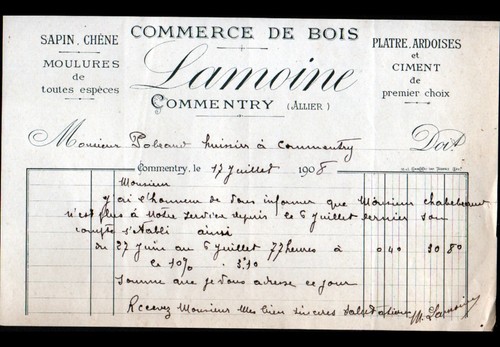 COMMERCE DE BOIS
SAPIN, CHÊNE
MOULURES
de
toutes espèces
Lamoine
COMMENTRY (ALLIER)
PLATRE, ARDOISES
et
CIMENT
de
premier choix
Monsieur huissier à Commentry Doit
Commentry, le 17 Juillet 1908
Monsieur
j'ai l'honneur de vous informer que Monsieur
n'est plus à notre service depuis le 6 juillet dernier son
compte s'établi ainsi
du 27 juin au 6 juillet 77 heures à 0 40 30 80
Ce 10% 3,10
Somme que je vous adresse ce jour
Recevez Monsieur mes bien sincères salutations
M. Lamoine